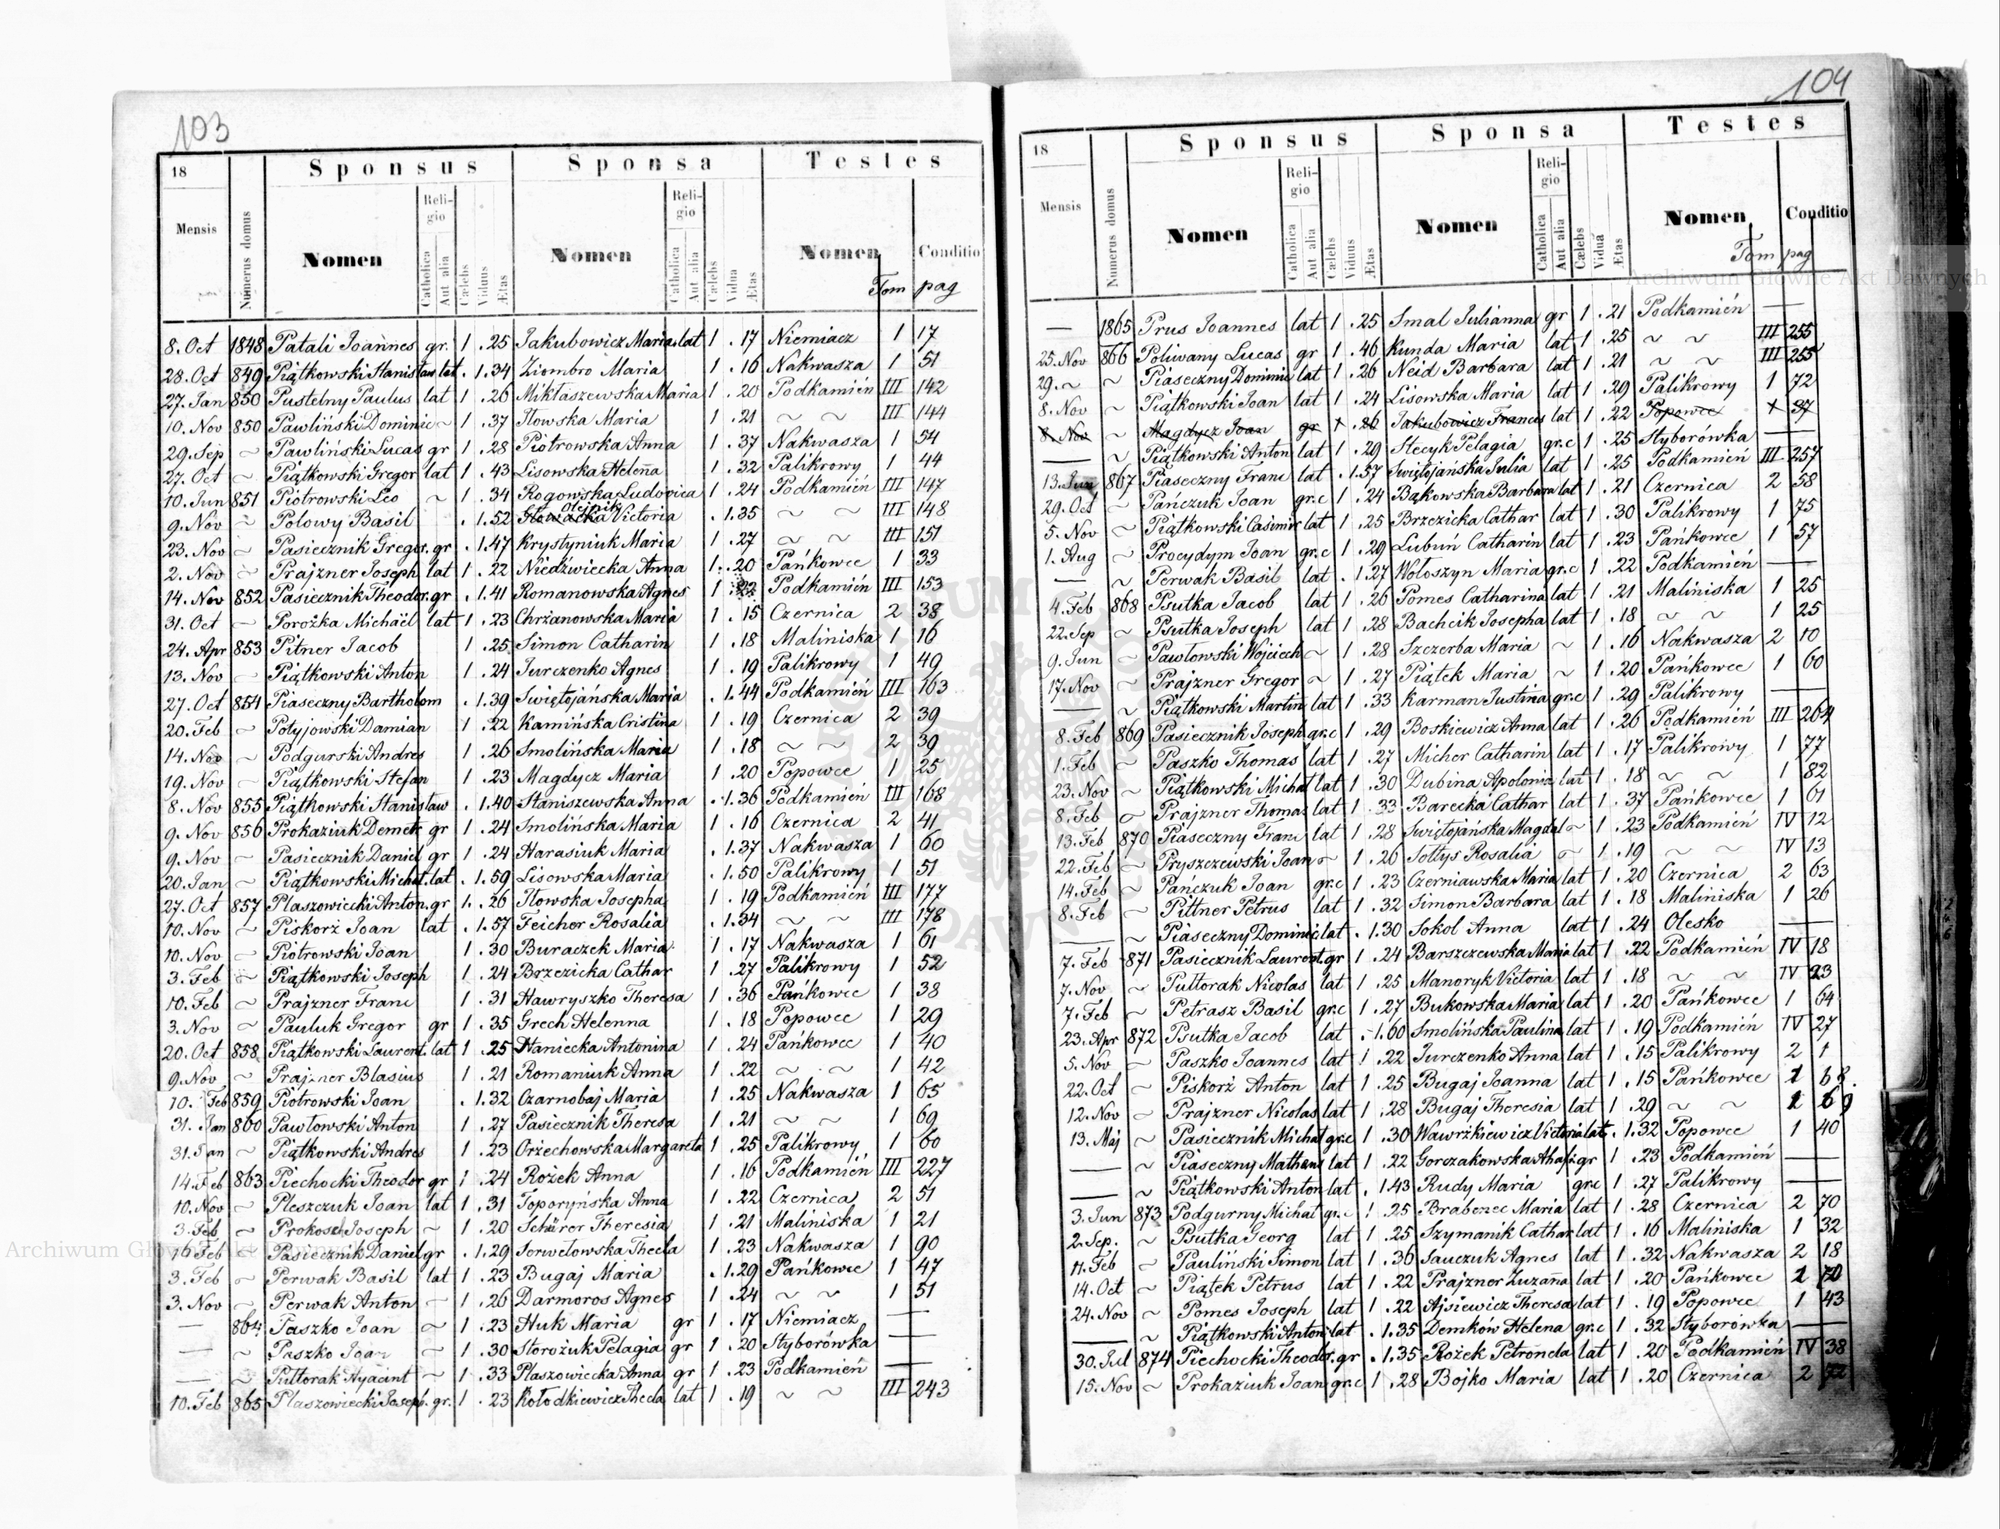 103
18 Sponsus Sponsa Testes
Mensis Numerus domus Nomen Religio Catholica Aut alia Cælebs Viduus Ætas Nomen Religio Catholica Aut alia Cælebs Vidua Ætas Nomen Conditio
Tom pag
8. Oct 1848 Patali Joannes gr. 1 . 25 Jakubowicz Maria lat 1 . 17 Niemiacz 1 17
28. Oct 849 Piątkowski Stanisław lat . 1. 34 Ziombro Maria 1 . 16 Nakwasza 1 51
27. Jan 850 Pustelny Paulus lat 1 . 26 Miktaszewska Maria 1 . 20 Podkamień III 142
10. Nov 850 Pawliński Dominic ~ 1 . 37 Iłowska Maria 1 . 21 ~ ~ III 144
29. Sep ~ Pawliński Lucas gr 1 . 28 Piotrowska Anna 1 . 37 Nakwasza 1 54
27. Oct ~ Piątkowski Gregor lat 1 . 43 Lisowska Helena 1 . 32 Palikrowy 1 44
10. Jun 851 Piotrowski Leo ~ 1 . 34 Rogowska Ludovica 1 . 24 Podkamień III 147
9. Nov ~ Polowy Basil . 1. 52 Głowacka Olejnik Victoria . 1. 35 ~ ~ III 148
23. Nov ~ Pasiecznik Gregor. gr . 1. 47 Krystyniuk Maria 1 . 27 ~ ~ III 151
2. Nov ~ Prajzner Joseph lat 1 . 22 Niedźwiecka Anna 1 . 20 Pańkowce 1 33
14. Nov 852 Pasiecznik Theodor. gr . 1. 41 Romanowska Agnes 1 . 22 Podkamień III 153
31. Oct ~ Porożka Michaël lat 1 . 23 Chrzanowska Maria 1 . 15 Czernica 2 38
24. Apr 853 Pitner Jacob 1 . 25 Simon Catharin 1 . 18 Maliniska 1 16
13. Nov ~ Piątkowski Anton 1 . 24 Jurczenko Agnes 1 . 19 Palikrowy 1 49
27. Oct 854 Piaseczny Bartholom . 1. 39 Swiętojańska Maria . 1. 44 Podkamień III 163
20. Feb ~ Potyjowski Damian 1 . 22 Kamińska Cristina 1 . 19 Czernica 2 39
14. Nov ~ Podgurski Andres 1 . 26 Smolińska Maria 1 . 18 ~ ~ 2 39
19. Nov ~ Piątkowski Stefan 1 . 23 Magdycz Maria 1 . 20 Popowce 1 25
8. Nov 855 Piątkowski Stanisław . 1. 40 Staniszewska Anna . 1. 36 Podkamień III 168
9. Nov 856 Prokaziuk Demetr gr 1 . 24 Smolińska Maria 1 . 16 Czernica 2 41
9. Nov ~ Pasiecznik Daniel gr 1 . 24 Harasiuk Maria . 1. 37 Nakwasza 1 60
20. Jan ~ Piątkowski Michał. lat . 1. 59 Lisowska Maria . 1. 50 Palikrowy 1 51
27. Oct 857 Płaszowiecki Anton. gr 1 . 26 Iłowska Josepha 1 . 19 Podkamień III 177
10. Nov ~ Piskorż Joan lat . 1. 57 Feicher Rosalia . 1. 34 ~ ~ III 178
10. Nov ~ Piotrowski Joan 1 . 30 Buraczek Maria 1 . 17 Nakwasza 1 61
3. Feb ~ Piątkowski Joseph 1 . 24 Brzezicka Cathar 1 . 27 Palikrowy 1 52
10. Feb ~ Prajzner Franc 1 . 31 Hawryszko Theresa 1 . 36 Pańkowce 1 38
3. Nov ~ Pauluk Gregor gr 1 . 35 Grech Helenna 1 . 18 Popowce 1 29
20. Oct 858 Piątkowski Laurent. lat 1 . 25 Haniecka Antonina 1 . 24 Pańkowce 1 40
9. Nov ~ Prajzner Blasius 1 . 21 Romaniuk Anna 1 . 22 ~ ~ 1 42
10. Feb 859 Piotrowski Joan . 1. 32 Czarnobaj Maria 1 . 25 Nakwasza 1 65
31. Jan 860 Pawłowski Anton 1 . 27 Pasiecznik Theresa 1 . 21 ~ ~ 1 69
31. Jan ~ Piątkowski Andres 1 . 23 Orzechowska Margareta 1 . 25 Palikrowy 1 60
14. Feb 863 Piechocki Theodor gr 1 . 24 Rożek Anna 1 . 16 Podkamień III 227
10. Nov ~ Pleszczuk Joan lat 1 . 31 Toporyńska Anna 1 . 22 Czernica 2 51
3. Feb ~ Prokosch Joseph ~ 1 . 20 Schürer Theresia 1 . 21 Maliniska 1 21
16 Feb ~ Pasiecznik Daniel gr . 1. 29 Serwetowska Thecla 1 . 23 Nakwasza 1 90
3. Feb ~ Perwak Basil lat 1 . 23 Bugaj Maria . 1. 29 Pańkowce 1 47
3. Nov ~ Perwak Anton ~ 1 . 26 Darmoros Agnes 1 . 24 ~ ~ 1 51
— 864 Paszko Joan ~ 1 . 23 Huk Maria gr 1 . 17 Niemiacz —
— ~ Paszko Joan ~ 1 . 30 Storożuk Pelagia gr 1 . 20 Styborówka —
— ~ Pułtorak Hyacint ~ 1 . 33 Płaszowiecka Anna gr 1 . 23 Podkamień —
10. Feb 865 Płaszowiecki Joseph. gr. 1 . 23 Kołodkiewicz Thecla lat 1 . 19 ~ ~ III 243
104
18 Sponsus Sponsa Testes
Mensis Numerus domus Nomen Religio Catholica Aut alia Cælebs Viduus Ætas Nomen Religio Catholica Aut alia Cælebs Vidua Ætas Nomen Conditio
Tom pag
— 1865 Prus Joannes lat 1 . 25 Smal Julianna gr 1 . 21 Podkamień —
25. Nov 866 Poliwany Lucas gr 1 . 46 Kunda Maria lat 1 . 25 ~ ~ III 255
29. ~ ~ Piaseczny Dominic lat 1 . 26 Neid Barbara lat 1 . 21 ~ ~ III 255
8. Nov ~ Piątkowski Joan lat 1 . 24 Lisowska Maria lat 1 . 29 Palikrowy 1 72
8. Nov ~ Magdycz Joan gr 1 . 26 Jakubowicz Frances lat 1 . 22 Popowce 1 37
— ~ Piątkowski Anton lat 1 . 29 Stecyk Pelagia gr.c 1 . 25 Styborówka —
13. Jun 867 Piaseczny Franc lat . 1. 57 Swiętojańska Julia lat 1 . 25 Podkamień III 257
29. Oct ~ Pańczuk Joan gr.c 1 . 24 Bąkowska Barbara lat 1 . 21 Czernica 2 58
5. Nov ~ Piątkowski Casimir lat 1 . 25 Brzezicka Cathar lat 1 . 30 Palikrowy 1 75
1. Aug ~ Procydym Joan gr.c 1 . 29 Lubuń Catharin lat 1 . 23 Pańkowce 1 57
— ~ Perwak Basil lat . 1. 27 Wołoszyn Maria gr.c 1 . 22 Podkamień —
4. Feb 868 Psutka Jacob lat 1 . 26 Pomes Catharina lat 1 . 21 Maliniska 1 25
22. Sep ~ Psutka Joseph lat 1 . 28 Bachcik Josepha lat 1 . 18 ~ ~ 1 25
9. Jun ~ Pawłowski Wojciech ~ 1 . 28 Szczerba Maria ~ 1 . 16 Nakwasza 2 10
17. Nov ~ Prajzner Gregor ~ 1 . 27 Piątek Maria ~ 1 . 20 Pańkowce 1 60
— ~ Piątkowski Martin lat 1 . 33 Karman Justina gr.c 1 . 29 Palikrowy —
8. Feb 869 Pasiecznik Joseph gr.c 1 . 29 Boskiewicz Anna lat 1 . 26 Podkamień III 264
1. Feb ~ Paszko Thomas lat 1 . 27 Micher Catharin lat 1 . 17 Palikrowy 1 77
23. Nov ~ Piątkowski Michał lat 1 . 30 Dubina Apolonia lat 1 . 18 ~ ~ 1 82
8. Feb ~ Prajzner Thomas lat 1 . 33 Barecka Cathar lat 1 . 37 Pańkowce 1 61
13. Feb 870 Piaseczny Franc lat 1 . 28 Swiętojańska Magdal ~ 1 . 23 Podkamień IV 12
22. Feb ~ Pryszczewski Joan ~ 1 . 26 Sołtys Rosalia ~ 1 . 19 ~ ~ IV 13
14. Feb ~ Pańczuk Joan gr.c 1 . 23 Czerniawska Maria lat 1 . 20 Czernica 2 63
8. Feb ~ Pittner Petrus lat 1 . 32 Simon Barbara lat 1 . 18 Maliniska 1 26
— ~ Piaseczny Dominic lat . 1. 30 Sokol Anna lat 1 . 24 Olesko —
7. Feb 871 Pasiecznik Laurent. gr 1 . 24 Barszczewska Maria lat 1 . 22 Podkamień IV 18
7. Nov ~ Pułtorak Nicolas lat 1 . 25 Manoryk Victoria lat 1 . 18 ~ ~ IV 23
7. Feb ~ Petrasz Basil gr.c 1 . 27 Bukowska Maria lat 1 . 20 Pańkowce 1 64
23. Apr 872 Psutka Jacob lat . 1. 60 Smolińska Paulina lat 1 . 19 Podkamień IV 27
5. Nov ~ Paszko Joannes lat 1 . 22 Jurczenko Anna lat 1 . 15 Palikrowy 2 1
22. Oct ~ Piskorż Anton lat 1 . 25 Bugaj Joanna lat 1 . 15 Pańkowce 1 68.
12. Nov ~ Prajzner Nicolas lat 1 . 28 Bugaj Theresia lat 1 . 29 ~ ~ 1 69
13. Maj ~ Pasiecznik Michał gr.c 1 . 30 Wawrżkiewicz Victoria lat . 1. 32 Popowce 1 40
— ~ Piaseczny Matheus lat 1 . 22 Gorczakowska Ahafi gr 1 . 23 Podkamień —
— ~ Piątkowski Anton lat . 1. 43 Rudy Maria gr.c 1 . 27 Palikrowy —
3. Jun 873 Podgurny Michał gr.c 1 . 25 Brabenec Maria lat 1 . 28 Czernica 2 70
2. Sep. ~ Psutka Georg lat 1 . 25 Szymanik Cathar lat 1 . 16 Maliniska 1 32
11. Feb ~ Pauliński Simon lat 1 . 36 Sauczuk Agnes lat 1 . 32 Nakwasza 2 18
14. Oct ~ Piątek Petrus lat 1 . 22 Prajzner Zuzanna lat 1 . 20 Pańkowce 1 70
24. Nov ~ Pomes Joseph lat 1 . 22 Ajsiewicz Theresa lat 1 . 19 Popowce 1 43
— ~ Piątkowski Anton lat . 1. 35 Demków Helena gr.c 1 . 32 Styborówka —
30. Jul 874 Piechocki Theodor. gr . 1. 35 Rożek Petronela lat 1 . 20 Podkamień IV 38
15. Nov ~ Prokaziuk Joan gr.c 1 . 28 Bojko Maria lat 1 . 20 Czernica 2 72
Archiwum Główne Akt Dawnych